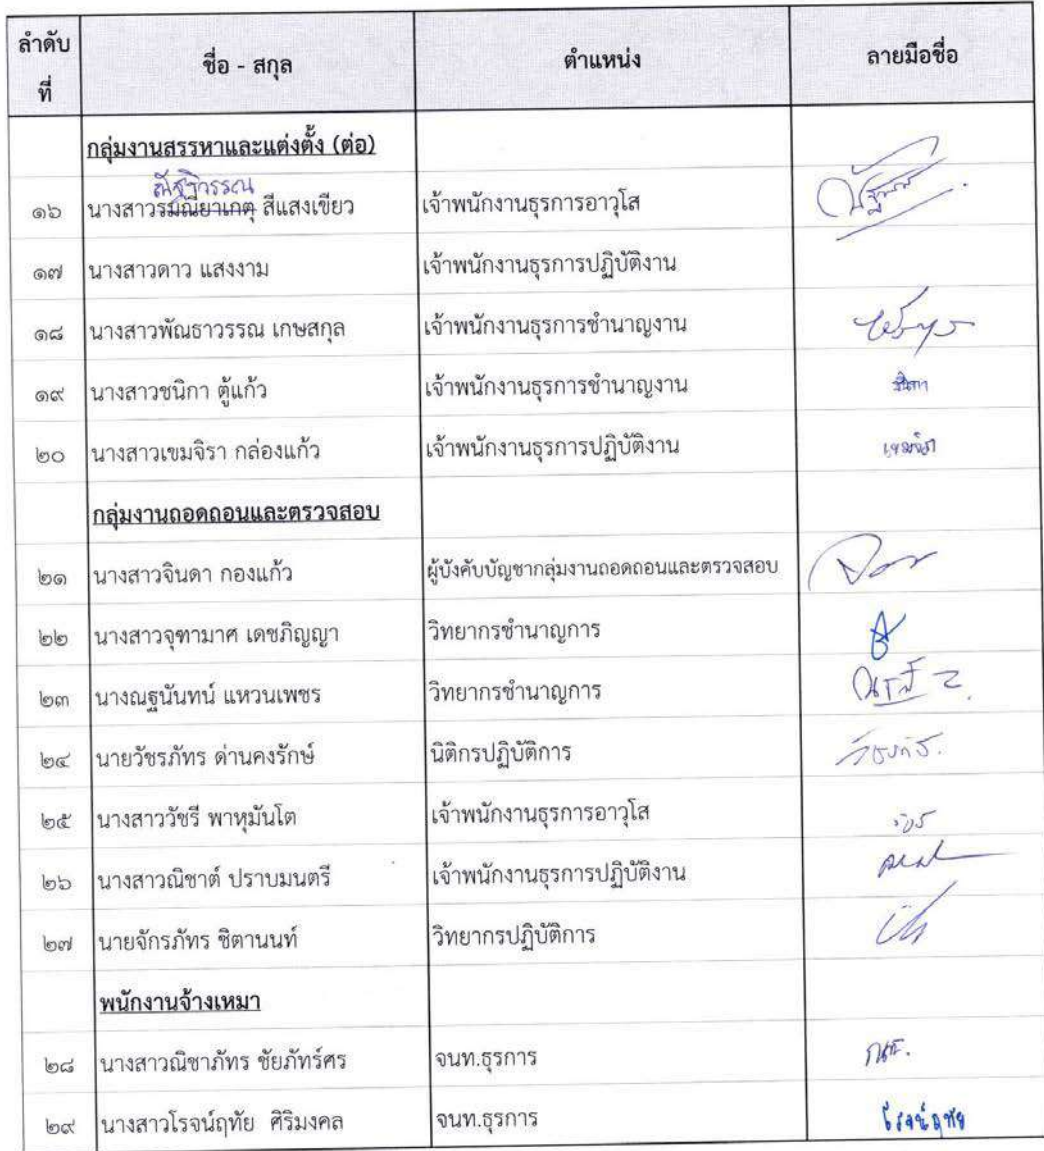 ลำดับที่ ชื่อ - สกุล ตำแหน่ง ลายมือชื่อ
กลุ่มงานสรรหาและแต่งตั้ง (ต่อ)
ณัฐวรรณ
๑๖ นางสาวรมณียาเกตุ สีแสงเขียว เจ้าพนักงานธุรการอาวุโส
๑๗ นางสาวดาว แสงงาม เจ้าพนักงานธุรการปฏิบัติงาน
๑๘ นางสาวพัณธาวรรณ เกษสกุล เจ้าพนักงานธุรการชำนาญงาน
๑๙ นางสาวชนิกา ตู้แก้ว เจ้าพนักงานธุรการชำนาญงาน ชนิกา
๒๐ นางสาวเขมจิรา กล่องแก้ว เจ้าพนักงานธุรการปฏิบัติงาน เขมจิรา
กลุ่มงานถอดถอนและตรวจสอบ
๒๑ นางสาวจินดา กองแก้ว ผู้บังคับบัญชากลุ่มงานถอดถอนและตรวจสอบ
๒๒ นางสาวจุฑามาศ เดชภิญญา วิทยากรชำนาญการ
๒๓ นางณฐนันทน์ แหวนเพชร วิทยากรชำนาญการ
๒๔ นายวัชรภัทร ด่านคงรักษ์ นิติกรปฏิบัติการ
๒๕ นางสาววัชรี พาหุมันโต เจ้าพนักงานธุรการอาวุโส
๒๖ นางสาวณิชาต์ ปราบมนตรี เจ้าพนักงานธุรการปฏิบัติงาน
๒๗ นายจักรภัทร ชิตานนท์ วิทยากรปฏิบัติการ
พนักงานจ้างเหมา
๒๘ นางสาวณิชาภัทร ชัยภัทร์ศร จนท.ธุรการ
๒๙ นางสาวโรจน์ฤทัย ศิริมงคล จนท.ธุรการ โรจน์ฤทัย